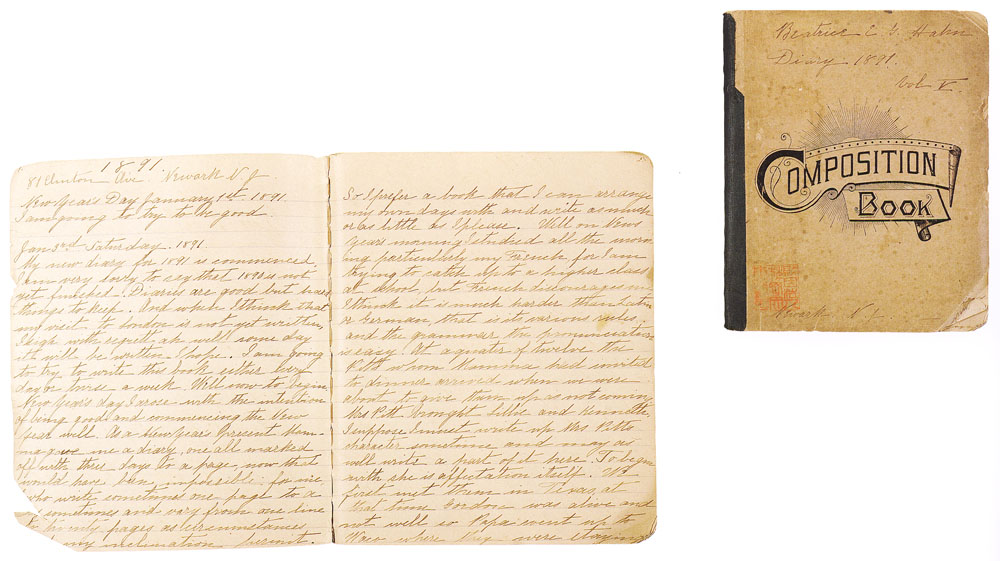 1891
81 Clinton Ave Newark N J
New Year's Day January 1st 1891.
I am going to try to be good.
Jan 3rd Saturday. 1891.
My new diary for 1891 is commenced
I am very sorry to say that 1890 is not
yet finished. Diaries are good but hard
things to keep. And when I think that
my visit to London is not yet written,
I sigh with regret, ah well some day
it will be written I hope. I am going
to try to write this book either every
day or twice a week. Well now to begin.
New Year's day I arose with the intention
of being good and commencing the New
Year well. As a New Year's present Mam-
ma gave me a diary, one all marked
off with three days to a page, now that
would have been impossible for me
who write sometimes one page to a
sometimes and vary from one line
to twenty pages as circumstances
my inclination permit.
So I prefer a book that I can arrange
my own days with and write as much
or as little as I please. Well on New
Years morning I studied all the morn
ing particularly my French for I am
trying to catch up to a higher class
at school, but French discourages me
I think it is much harder than Latin
or German, that is its various rules,
and the grammar, the pronunciation
is easy. At a quater of twelve the
Pitts whom Mamma had invited
to dinner arrived when we were
about to give them up as not coming
Mrs Pitt brought Lillie and Kenneth.
I suppose I must write up Mrs Pitts
character sometime and may as
well write a part of it here. To begin
with she is affectation itself. We
first met them in Texas, at
that time Gordon was alive and
not well so Papa went up to
Waco where they were staying
Beatrice C G Hahn
Diary 1891.
Vol V.
COMPOSITION
BOOK
Newark N J